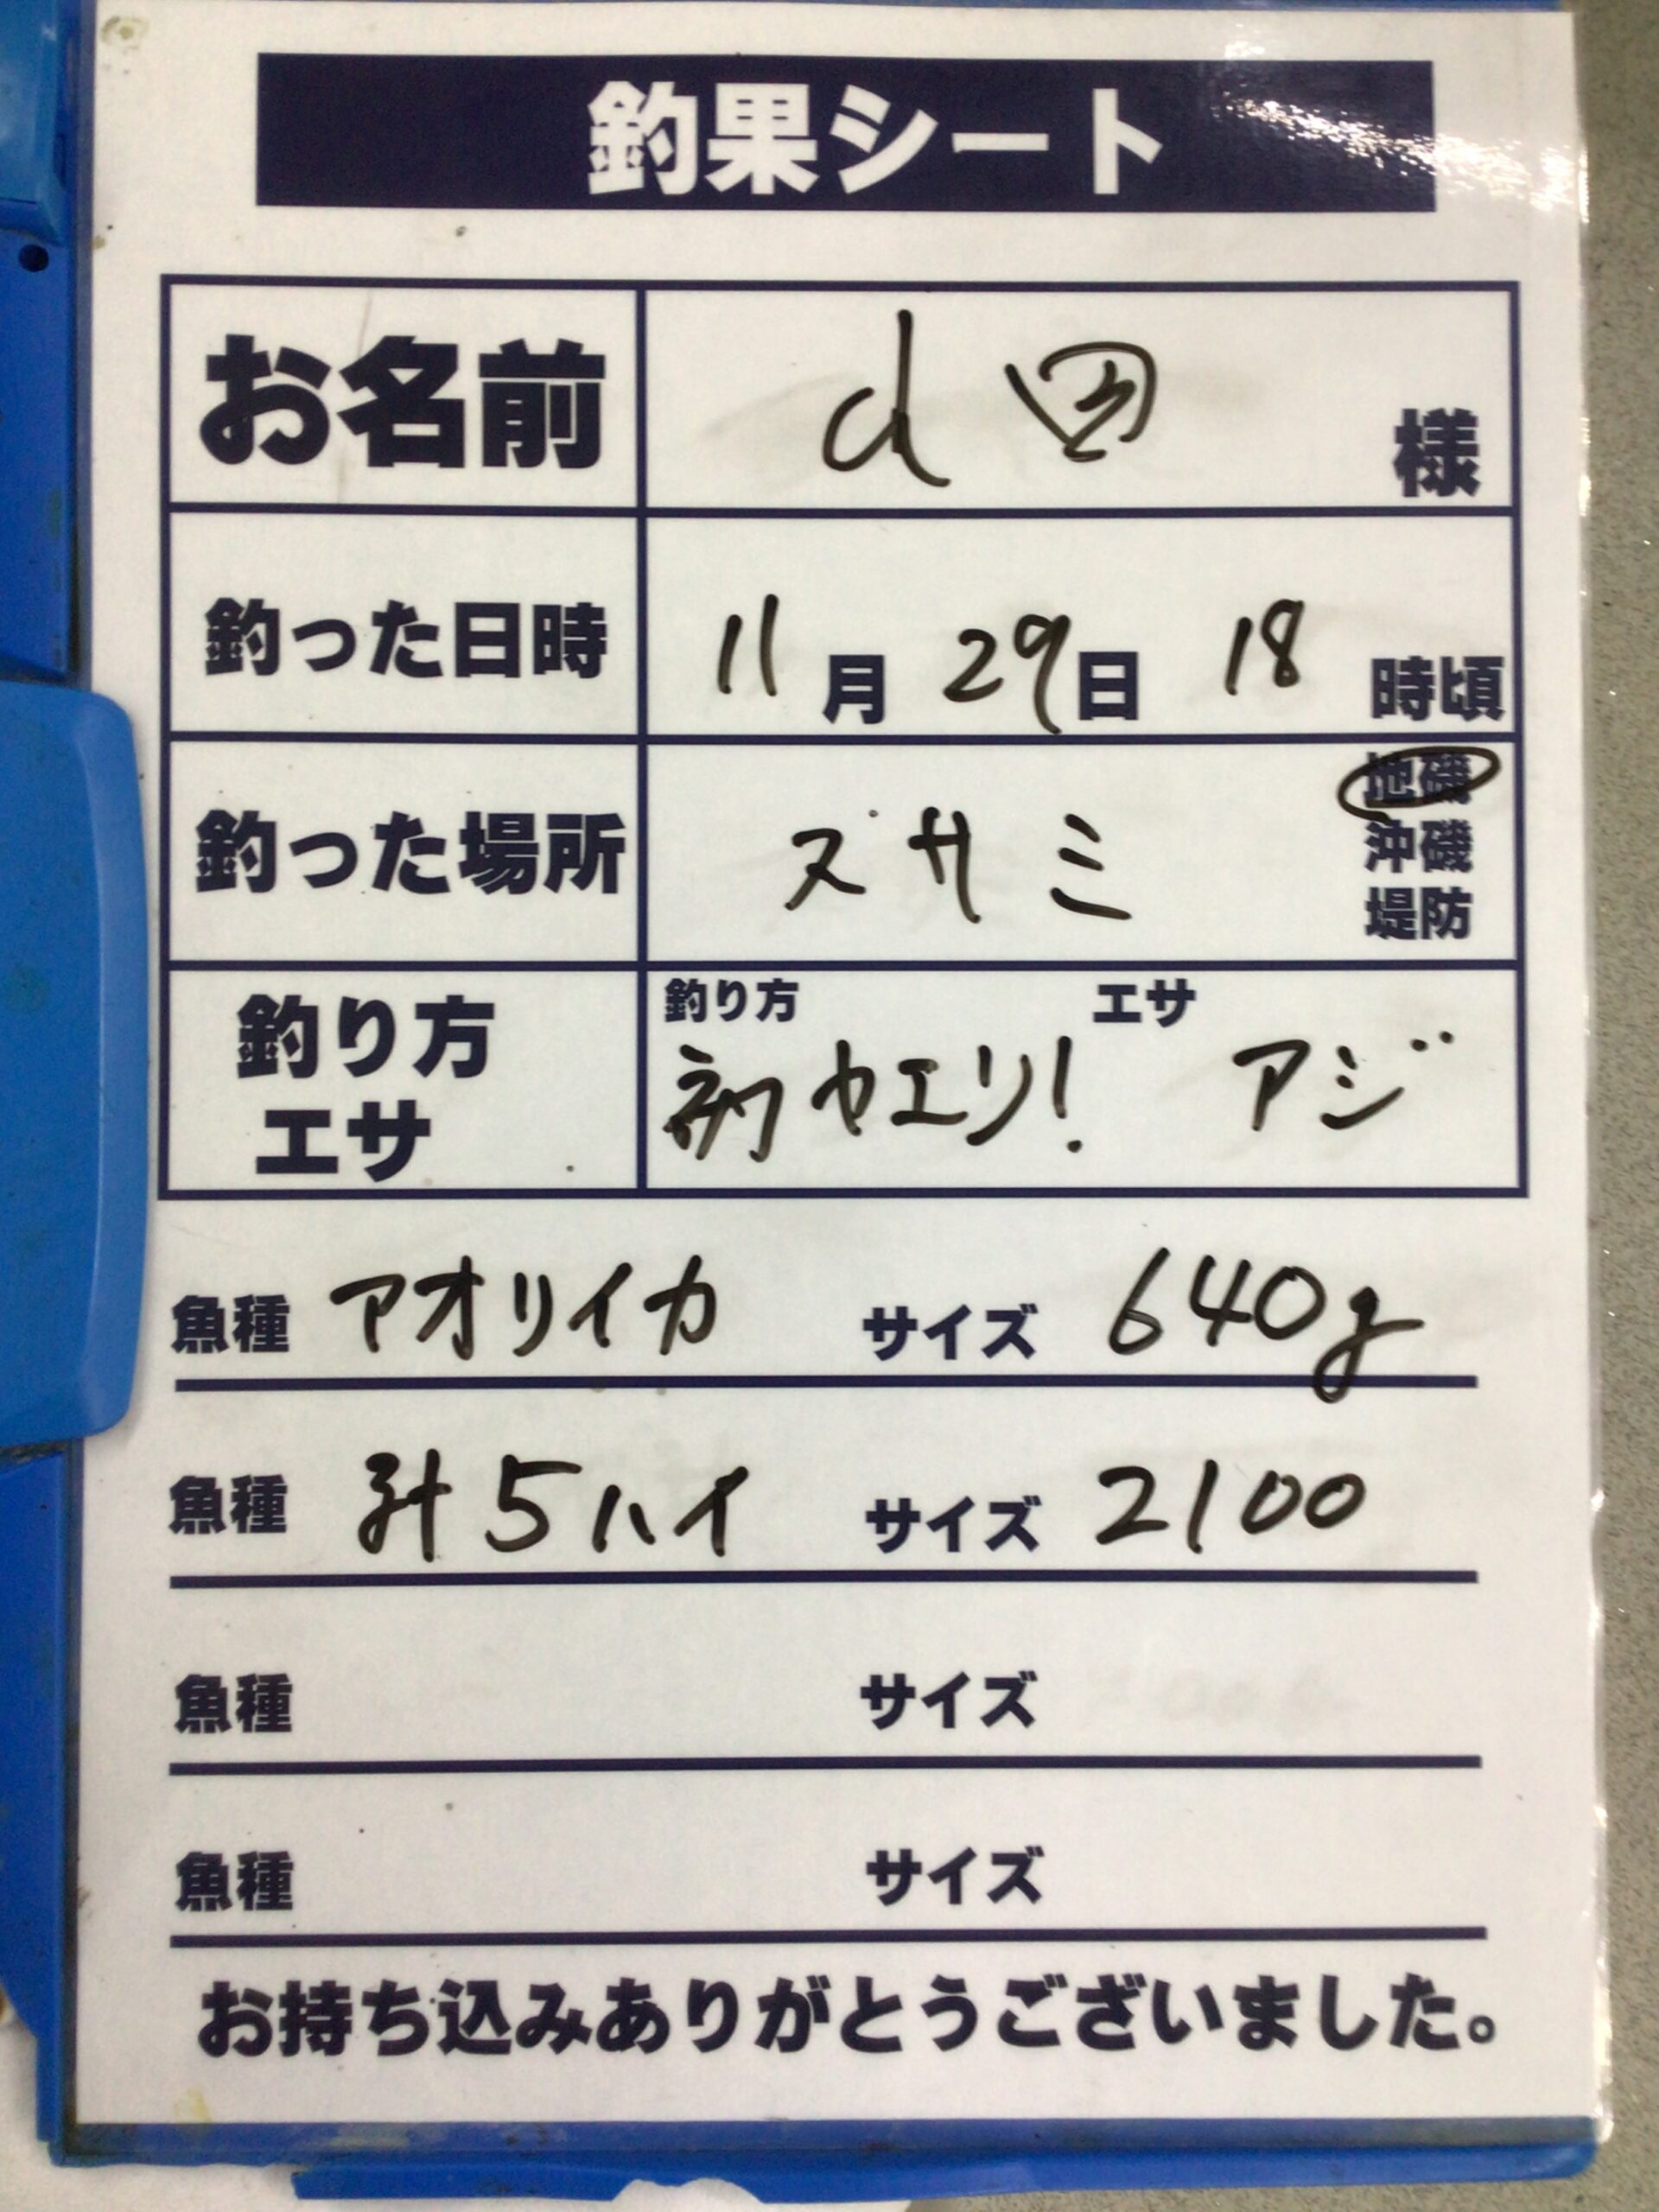 釣果シート
お名前 山田 様
釣った日時 11月 29日 18 時頃
釣った場所 スサミ 地磯
沖磯
堤防
釣り方 エサ
釣り方 初カエリ! エサ アジ
魚種 アオリイカ サイズ 640g
魚種 計5ハイ サイズ 2100
魚種 サイズ
魚種 サイズ
お持ち込みありがとうございました。